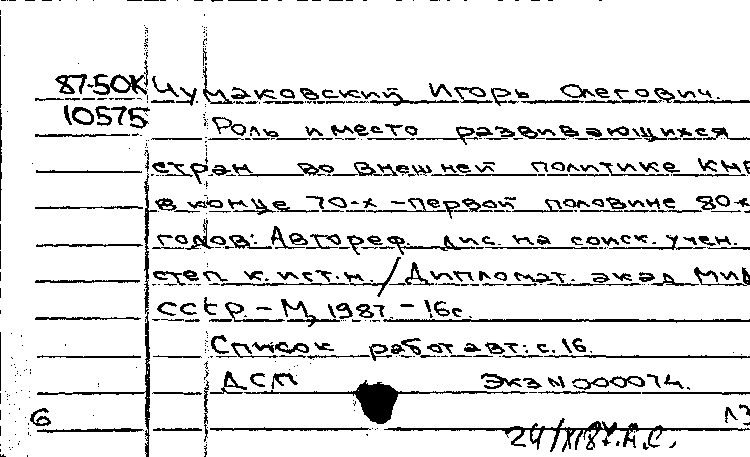 87-50К Чумаковский Игорь Олегович.
10575 Роль и место развивающихся
стран во внешней политике КНР
в конце 70-х - первой половине 80-х
годов: Автореф. дис. на соиск. учен.
степ к. ист. н. / Дипломат. акад МИД
СССР. - М, 1987. - 16с.
Список работ авт: с. 16.
ДСП Экз N 000074.
6
24/XI87. А.С.